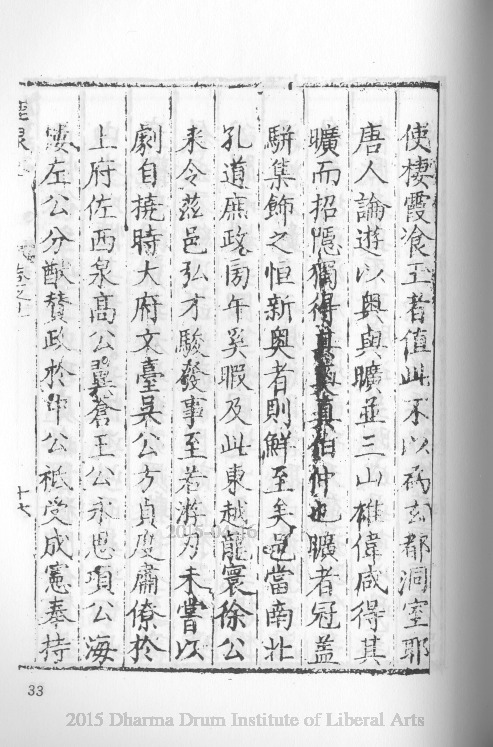 使棲霞飡玉者值此不以為玄都洞室耶
唐人論遊以奧與曠並三山雄偉咸得其
曠而招隱獨得其奧真伯仲也曠者冠蓋
駢集飾之恒新奧者則鮮至矣邑當南北
孔道庶政旁午奚暇及此東越龍寰徐公
来令茲邑弘才駿發事至若游刃未嘗以
劇自撓時大府文臺吴公方貞度肅僚於
上府佐西泉髙公翼蒼王公永思項公海
樓左公分猷賛政於中公祗受成憲奉持
十六
33
2015 Dharma Drum Institute of Liberal Arts